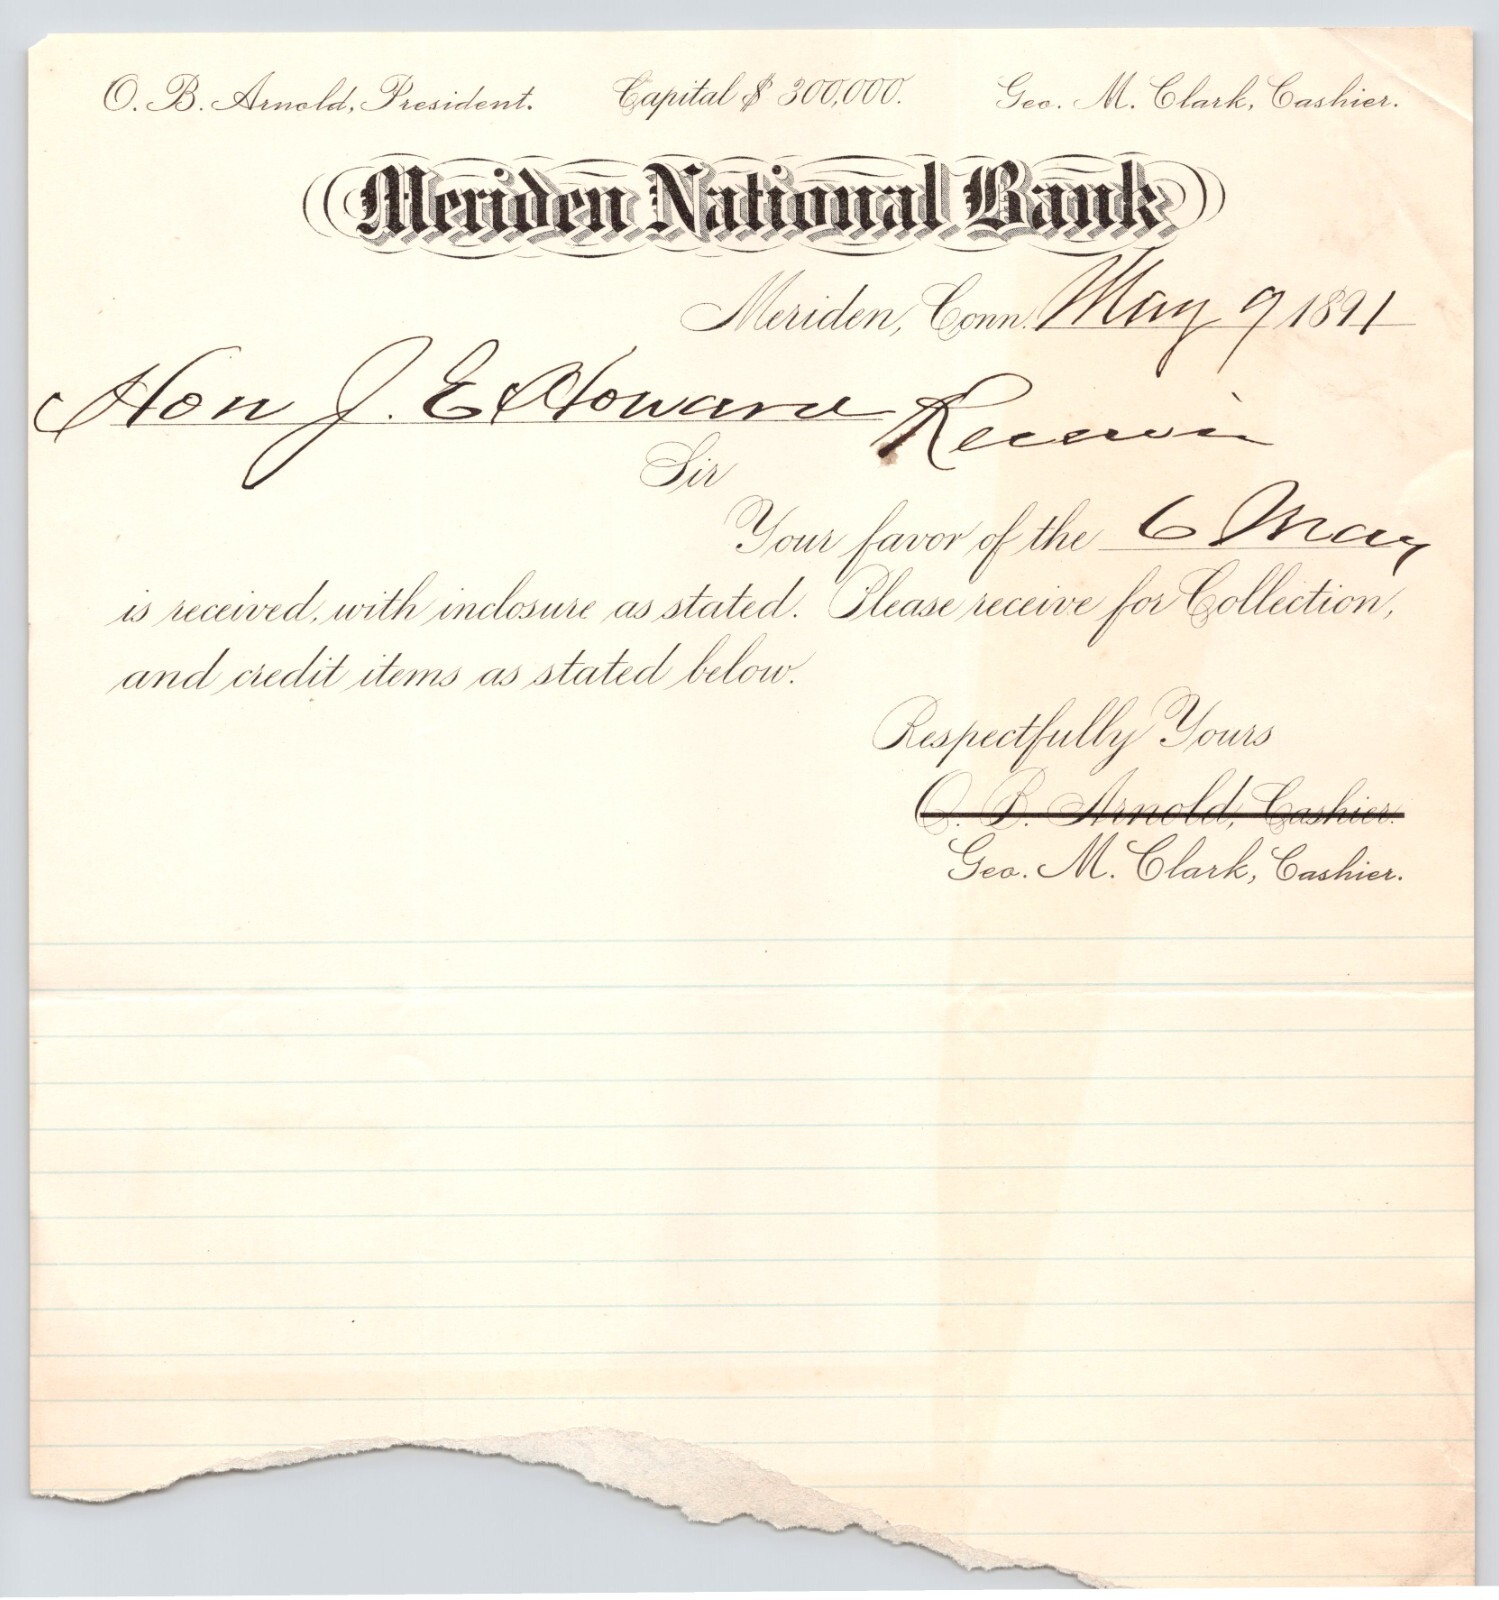 O. B. Arnold, President. Capital $ 300,000. Geo. M. Clark, Cashier.
Meriden National Bank
Meriden, Conn. May 9 1891
Hon J. E. Howard Receiver
Sir
Your favor of the 6 May
is received, with inclosure as stated. Please receive for Collection,
and credit items as stated below.
Respectfully Yours
O. B. Arnold, Cashier.
Geo. M. Clark, Cashier.